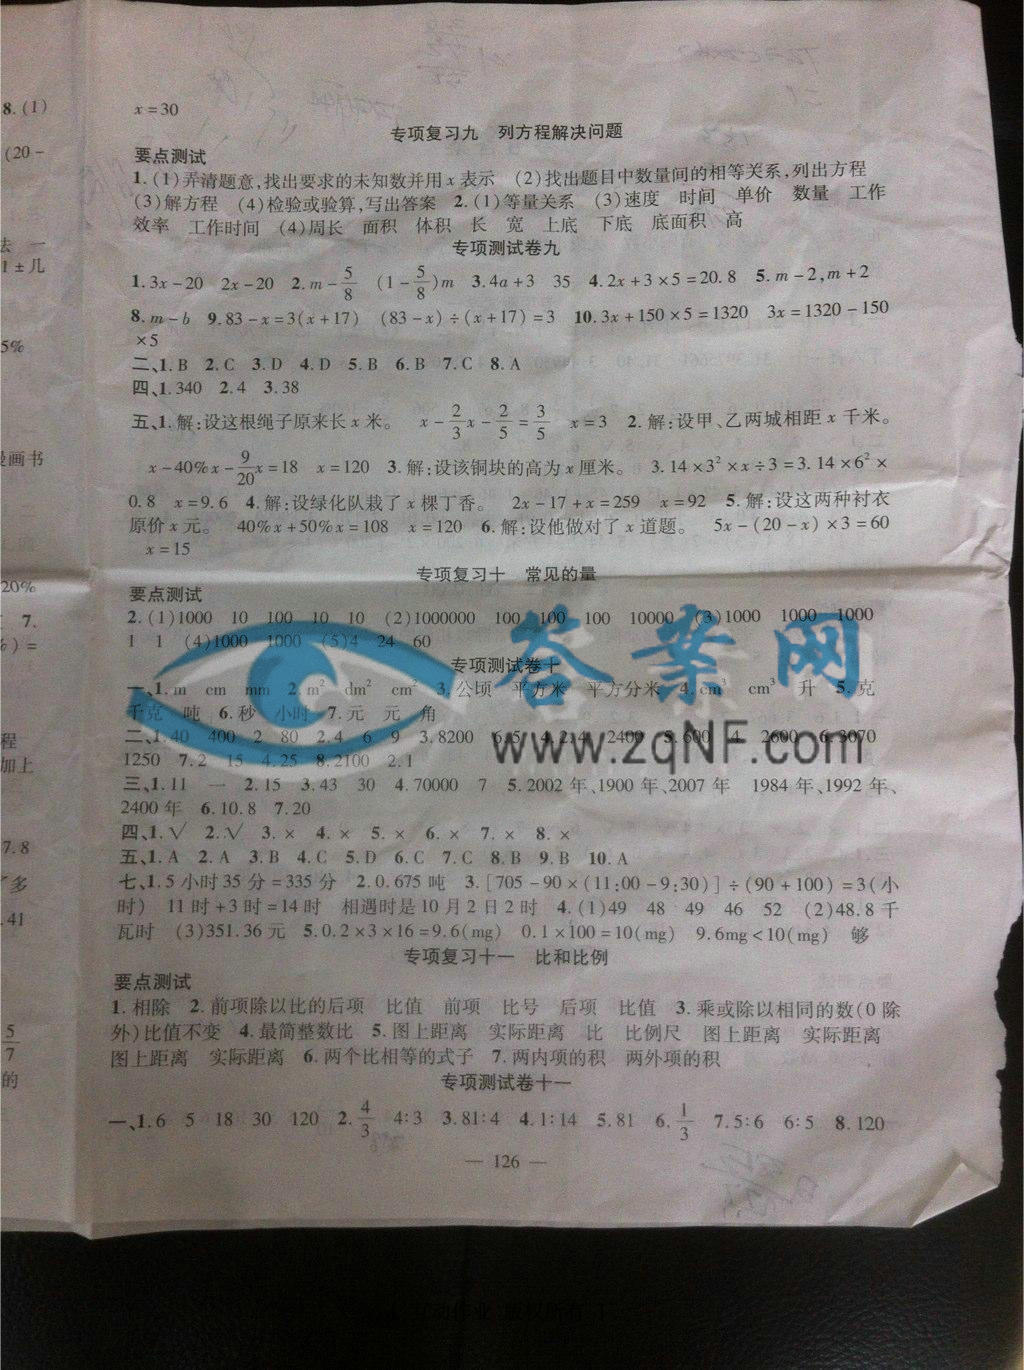 8.(1)
(20-
法 一
1±几
5%
漫画书
20%
7.
%)=
程
加上
7.8
了多
.41
5/7
的
x=30
专项复习九 列方程解决问题
要点测试
1.(1)弄清题意,找出要求的未知数并用x表示 (2)找出题目中数量间的相等关系,列出方程
(3)解方程 (4)检验或验算,写出答案 2.(1)等量关系 (3)速度 时间 单价 数量 工作
效率 工作时间 (4)周长 面积 体积 长 宽 上底 下底 底面积 高
专项测试卷九
1.3x-20 2x-20 2.m-5/8 (1-5/8)m 3.4a+3 35 4.2x+3×5=20.8 5.m-2,m+2
8.m-b 9.83-x=3(x+17) (83-x)÷(x+17)=3 10.3x+150×5=1320 3x=1320-150
×5
二、1.B 2.C 3.D 4.D 5.B 6.B 7.C 8.A
四、1.340 2.4 3.38
五、1.解:设这根绳子原来长x米。 x-2/3x-2/5=3/5 x=3 2.解:设甲、乙两城相距x千米。
x-40%x-9/20x=18 x=120 3.解:设该铜块的高为x厘米。 3.14×3²×x÷3=3.14×6²×
0.8 x=9.6 4.解:设绿化队栽了x棵丁香。 2x-17+x=259 x=92 5.解:设这两种衬衣
原价x元。 40%x+50%x=108 x=120 6.解:设他做对了x道题。 5x-(20-x)×3=60
x=15
专项复习十 常见的量
要点测试
2.(1)1000 10 100 10 10 (2)1000000 100 100 100 10000 (3)1000 1000 1000
1 1 (4)1000 1000 (5)4 24 60
答案网
www.zqNF.com
专项测试卷十
一、1.m cm mm 2.m² dm² cm² 3.公顷 平方米 平方分米 4.cm³ cm³ 升 5.克
千克 吨 6.秒 小时 7.元 元 角
二、1.40 400 2 80 2.4 6 9 3.8200 4 2400 5.600 4 2600 6.3070
1250 7.2 15 4.25 8.2100 2.1
三、1.11 一 2.15 3.43 30 4.70000 7 5.2002年、1900年、2007年 1984年、1992年、
2400年 6.10.8 7.20
四、1.√ 2.√ 3.× 4.× 5.× 6.× 7.× 8.×
五、1.A 2.A 3.B 4.C 5.D 6.C 7.C 8.B 9.B 10.A
七、1.5小时35分=335分 2.0.675吨 3.[705-90×(11:00-9:30)]÷(90+100)=3(小
时) 11时+3时=14时 相遇时是10月2日2时 4.(1)49 48 49 46 52 (2)48.8千
瓦时 (3)351.36元 5.0.2×3×16=9.6(mg) 0.1×100=10(mg) 9.6mg<10(mg) 够
专项复习十一 比和比例
要点测试
1.相除 2.前项除以比的后项 比值 前项 比号 后项 比值 3.乘或除以相同的数(0除
外)比值不变 4.最简整数比 5.图上距离 实际距离 比 比例尺 图上距离 实际距离
图上距离 实际距离 6.两个比相等的式子 7.两内项的积 两外项的积
专项测试卷十一
一、1.6 5 18 30 120 2.4/3 4:3 3.81:4 4.1:14 5.81 6.1/3 7.5:6 6:5 8.120
— 126 —